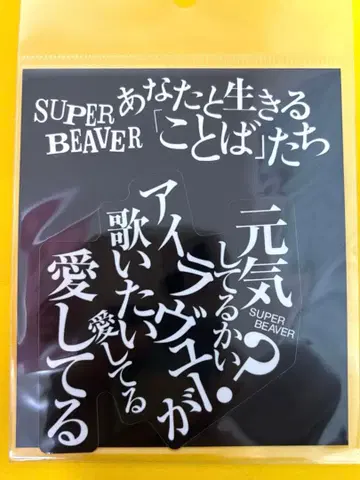 SUPER
BEAVER
あなたと生きる
「ことば」たち
元気
してるかい?
SUPER
BEAVER
アイラヴユーが
歌いたい愛してる
愛してる